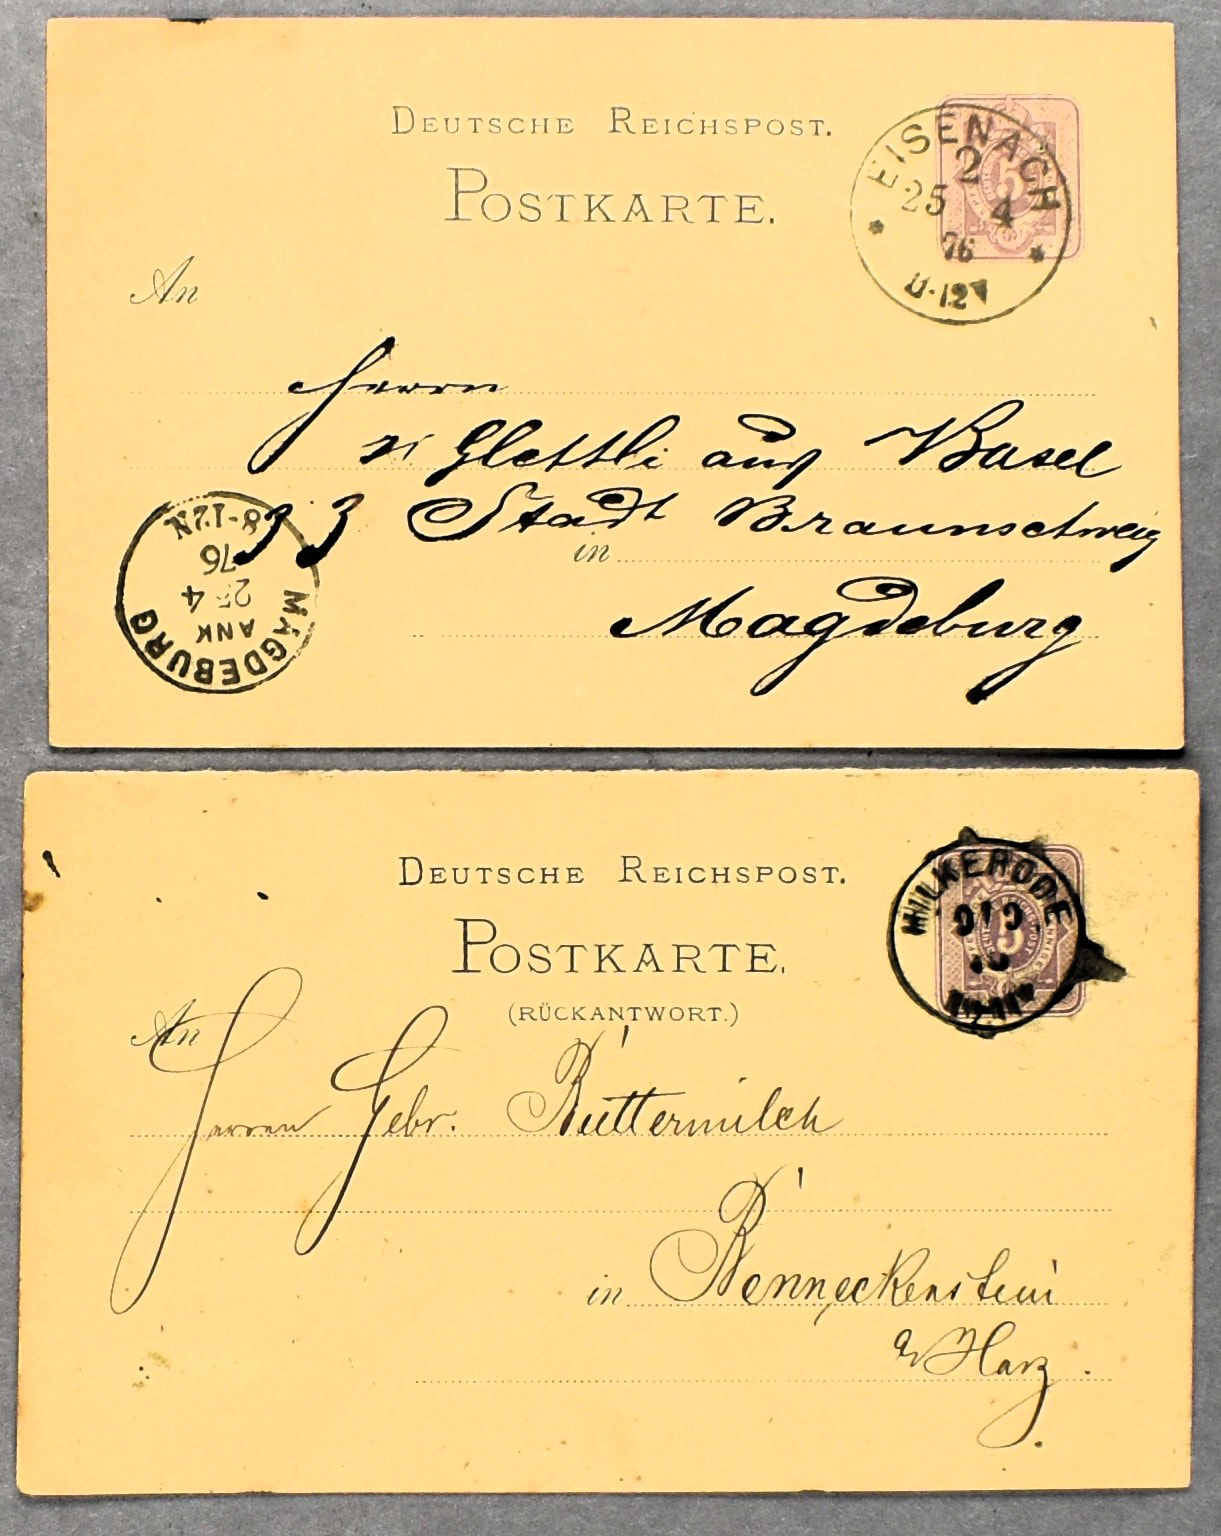 DEUTSCHE REICHSPOST.
POSTKARTE.
EISENACH
2
25 4
76
11-12V
An
Herrn
Glettli aus Basel
33 Stadt Braunschweig
in
Magdeburg
MAGDEBURG
ANK
25 4
76
8-12N
DEUTSCHE REICHSPOST.
POSTKARTE.
(RÜCKANTWORT.)
HILKERODE
5
An
Herren Gebr. Büttermilch
in Benneckenstein
a/Harz.